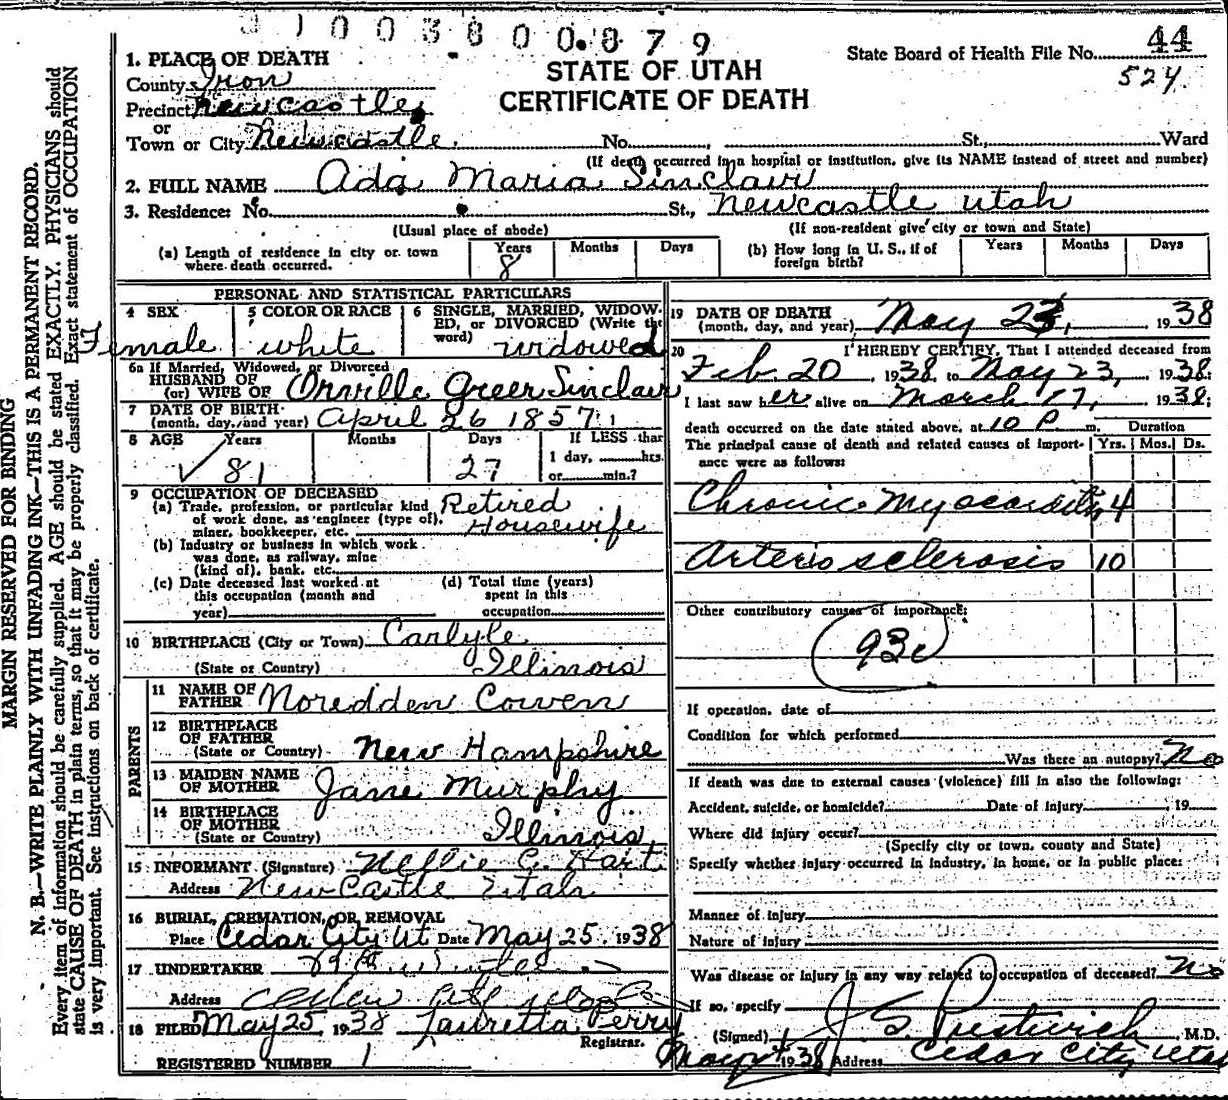 1003800879
State Board of Health File No. 44
524
STATE OF UTAH
CERTIFICATE OF DEATH
1. PLACE OF DEATH
County Iron
Precinct Newcastle
or
Town or City Newcastle. No. St., Ward
(If death occurred in a hospital or institution, give its NAME instead of street and number)
2. FULL NAME Ada Maria Sinclair
3. Residence: No. St., Newcastle Utah
(Usual place of abode) (If non-resident give city or town and State)
(a) Length of residence in city or town where death occurred. Years 8 Months Days
(b) How long in U. S., if of foreign birth? Years Months Days
PERSONAL AND STATISTICAL PARTICULARS
4 SEX Female
5 COLOR OR RACE white
6 SINGLE, MARRIED, WIDOWED, or DIVORCED (Write the word) widowed
6a If Married, Widowed, or Divorced
HUSBAND OF
(or) WIFE OF Orville Greer Sinclair
7 DATE OF BIRTH
(month, day, and year) April 26 1857
8 AGE Years 81 Months Days 27 If LESS than 1 day, hrs. or min.?
9 OCCUPATION OF DECEASED
(a) Trade, profession, or particular kind Retired
of work done, as engineer (type of), Housewife
miner, bookkeeper, etc.
(b) Industry or business in which work
was done, as railway, mine
(kind of), bank, etc.
(c) Date deceased last worked at this occupation (month and year)
(d) Total time (years) spent in this occupation
10 BIRTHPLACE (City or Town) Carlyle
(State or Country) Illinois
PARENTS
11 NAME OF FATHER Noredden Cowen
12 BIRTHPLACE OF FATHER
(State or Country) New Hampshire
13 MAIDEN NAME OF MOTHER Jane Murphy
14 BIRTHPLACE OF MOTHER
(State or Country) Illinois
15 INFORMANT (Signature) Nellie C. Hart
Address NewCastle Utah
16 BURIAL, CREMATION, OR REMOVAL
Place Cedar City Ut Date May 25. 1938
17 UNDERTAKER
Address
18 FILED May 25, 1938 Lauretta Perry
Registrar.
REGISTERED NUMBER 1
19 DATE OF DEATH
(month, day, and year) May 23, 1938
20 I HEREBY CERTIFY, That I attended deceased from
Feb. 20, 1938, to May 23, 1938.
I last saw her alive on March 17, 1938;
death occurred on the date stated above, at 10 P m. Duration
The principal cause of death and related causes of importance were as follows: Yrs. Mos. Ds.
Chronic Myocarditis 4
Arterio sclerosis 10
Other contributory causes of importance:
93c
If operation, date of
Condition for which performed
Was there an autopsy? No
If death was due to external causes (violence) fill in also the following:
Accident, suicide, or homicide? Date of injury , 19
Where did injury occur?
(Specify city or town, county and State)
Specify whether injury occurred in industry, in home, or in public place:
Manner of injury
Nature of injury
Was disease or injury in any way related to occupation of deceased? No
If so, specify
(Signed) J S Prestwich M.D.
1938 Address Cedar City Utah
MARGIN RESERVED FOR BINDING
N. B.—WRITE PLAINLY WITH UNFADING INK—THIS IS A PERMANENT RECORD.
Every item of information should be carefully supplied. AGE should be stated EXACTLY. PHYSICIANS should
state CAUSE OF DEATH in plain terms, so that it may be properly classified. Exact statement of OCCUPATION
is very important. See instructions on back of certificate.